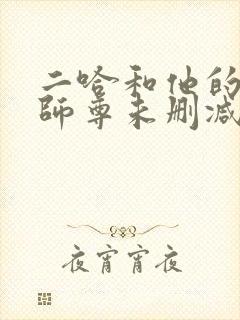 二哈和他的
師尊未删减
夜宵宵夜